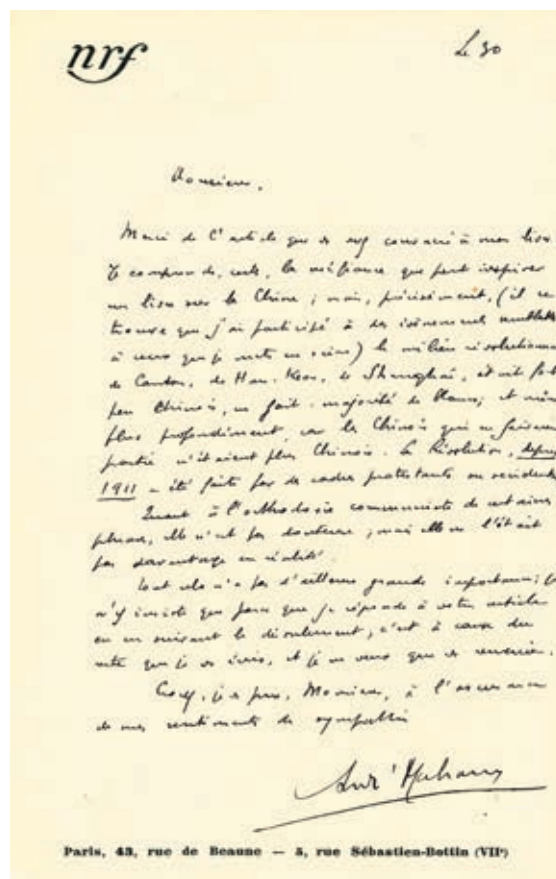 nrf
Le 30
Monsieur,
Merci de l'article que vs avez consacré à mon livre.
Je comprends, certes, la méfiance que peut inspirer
un livre sur la Chine ; mais, précisément, (il se
trouve que j'ai participé à des événements semblables
à ceux que je mets en scène) le milieu révolutionnaire
de Canton, de Han-Keou, de Shanghaï, était fort
peu chinois, en fait : majorité de blancs ; et même
plus profondément, car les Chinois qui en faisaient
partie n'étaient plus Chinois. La Révolution, depuis
1911 a été faite par des cadres protestants ou occidentaux
Quant à l'orthodoxie communiste de certaines
phrases, elle n'est pas douteuse ; mais elle ne l'était
pas davantage en réalité.
Tout cela n'a pas d'ailleurs grande importance ;
n'y insiste que parce que je réponds à votre article
en en suivant le déroulement, c'est à cause du
reste que je vs écris, et je ne veux que vs remercier.
Croyez, je vs prie, Monsieur, à l'assurance
de mes sentiments de sympathie
André Malraux
Paris, 43, rue de Beaune — 5, rue Sébastien-Bottin (VIIe)